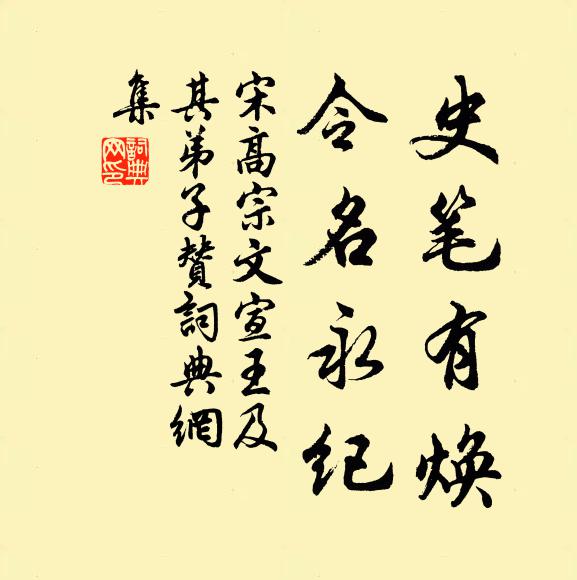 史笔有焕
令名永纪
宋高宗文宣王及
其弟子贊詞典網
集
詞典
网印